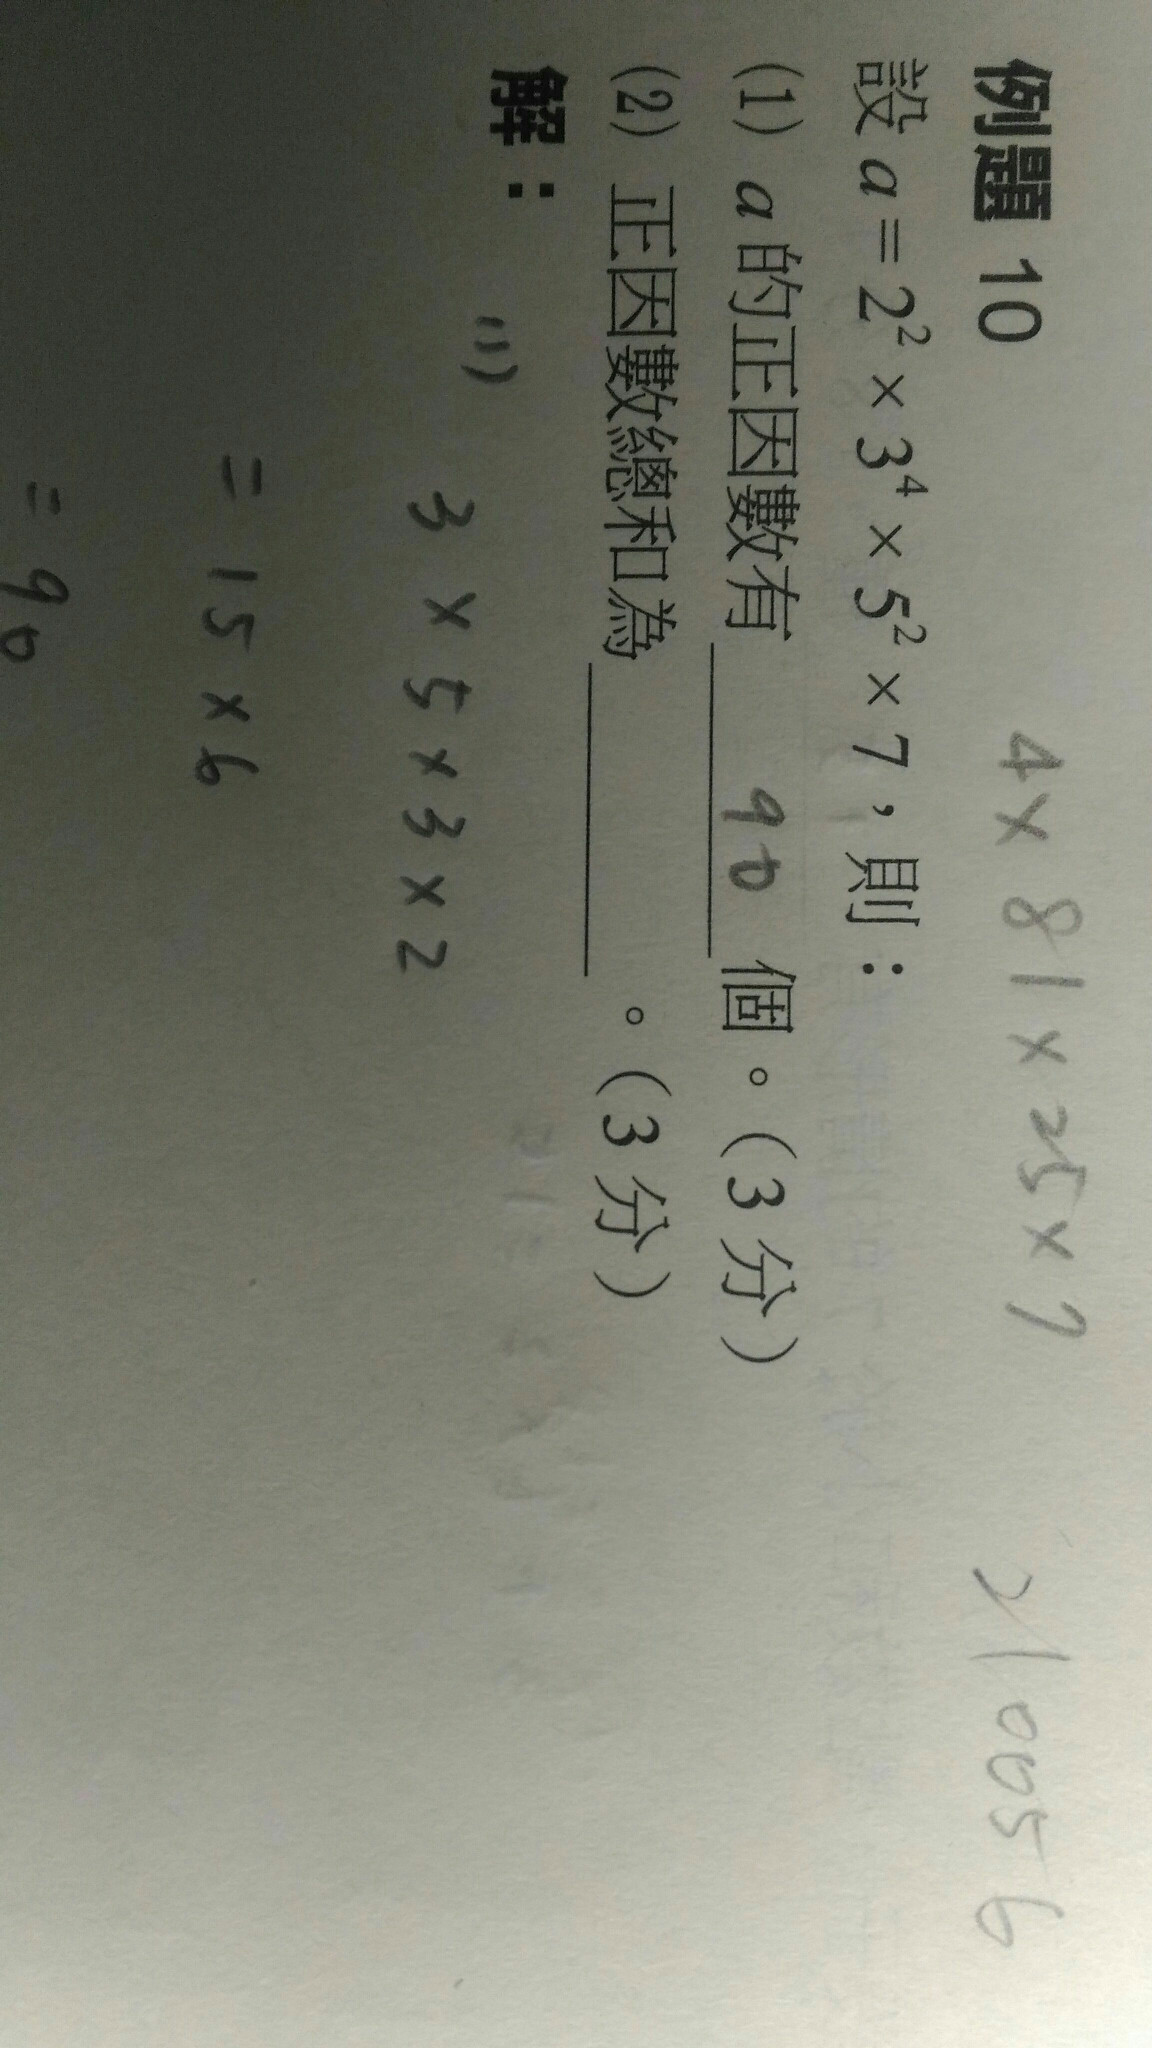 例題 10
4×81×25×7
設 a = 2² × 3⁴ × 5² × 7，則：
(1) a 的正因數有 90 個。(3 分)
(2) 正因數總和為______。(3 分)
解：
(1)
3 × 5 × 3 × 2
= 15 × 6
= 90